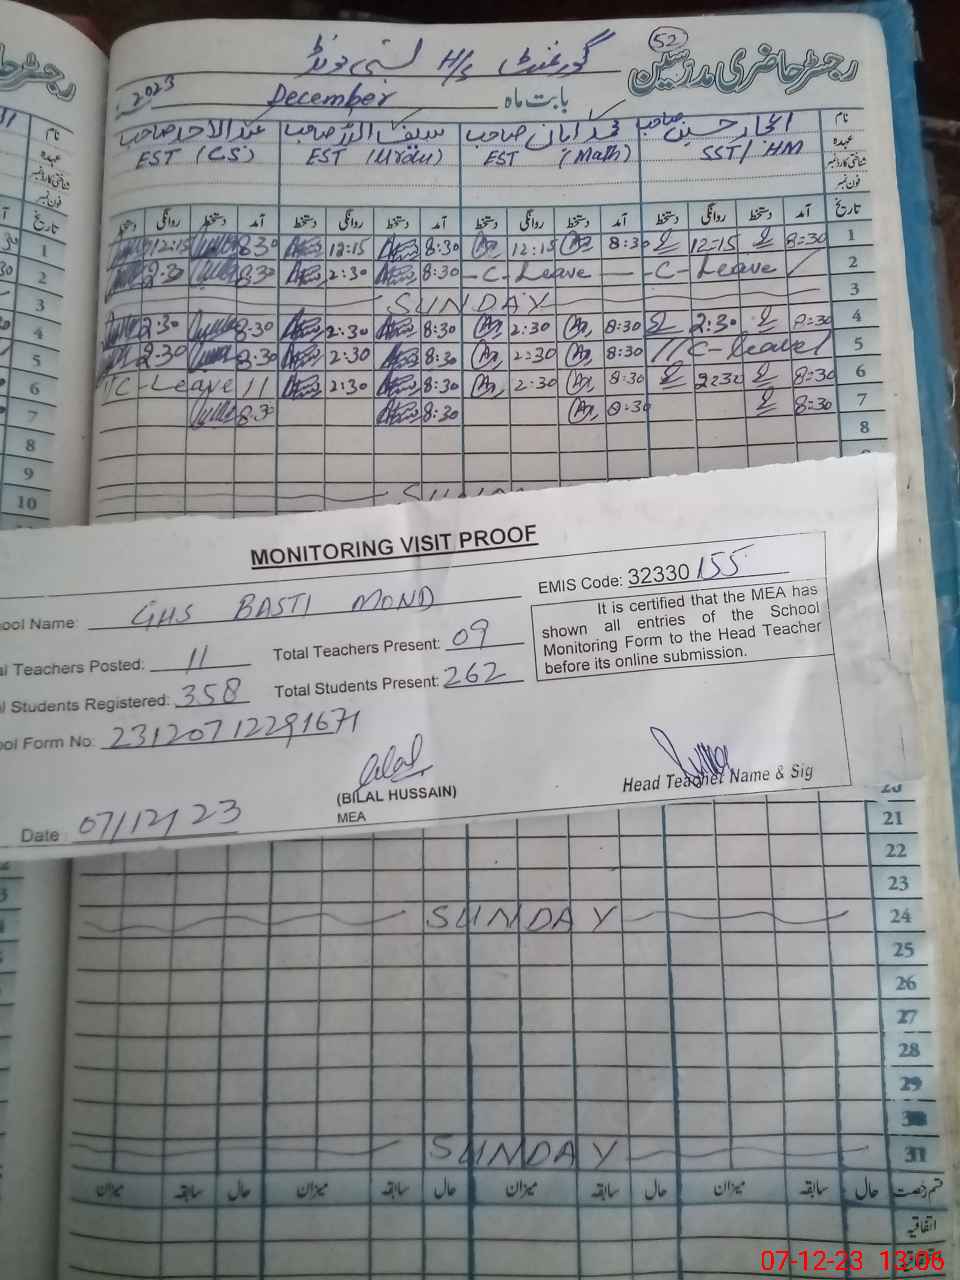 52
رجسٹر حاضری مدرسین
گورنمنٹ H/S بستی مونڈ
بابت ماہ December 2023
نام
اعجاز حسین صاحب
محمد امان صاحب
سیف اللہ صاحب
عبدالاحد صاحب
عہدہ
SST/HM
EST (Math)
EST (Urdu)
EST (CS)
شناختی کارڈ نمبر
فون نمبر
تاریخ آمد دستخط روانگی دستخط آمد دستخط روانگی دستخط آمد دستخط روانگی دستخط آمد دستخط روانگی دستخط
1 8=30 12=15 8:30 12:15 8:30 12:15 8:30 12:15
2 C-Leave -C-Leave- 8:30 2:30 8:30 2:30
3 SUNDAY
4 8=30 2:30 8:30 2:30 8:30 2:30 8:30 2:30
5 // C-Leave 8:30 2:30 8:30 2:30 8:30 2:30
6 8=30 2=30 8:30 2:30 8:30 2:30 C-Leave
7 8=30 8:30 8:30 8:30
8
9
10 SUNDAY
MONITORING VISIT PROOF
ool Name: GHS BASTI MOND
EMIS Code: 32330155
al Teachers Posted: 11
Total Teachers Present: 09
al Students Registered: 358
Total Students Present: 262
It is certified that the MEA has
shown all entries of the School
Monitoring Form to the Head Teacher
before its online submission.
ool Form No: 23120712291671
(BILAL HUSSAIN)
MEA
Head Teacher Name & Sig
Date: 07/12/23
21
22
23
24 SUNDAY
25
26
27
28
29
30
31 SUNDAY
قسم رخصت حال سابقہ میزان حال سابقہ میزان حال سابقہ میزان حال سابقہ میزان
اتفاقیہ
07-12-23 13:06